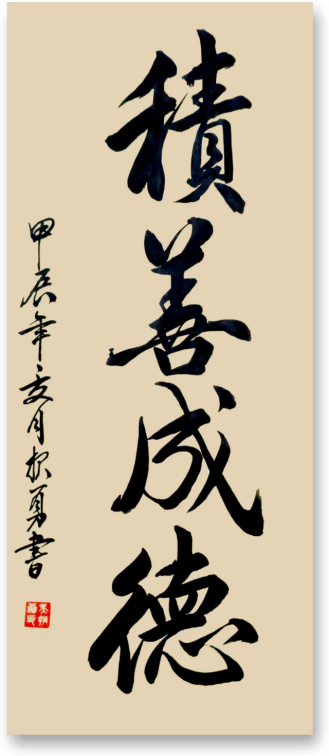 積善成德
甲辰年亥月 勇書